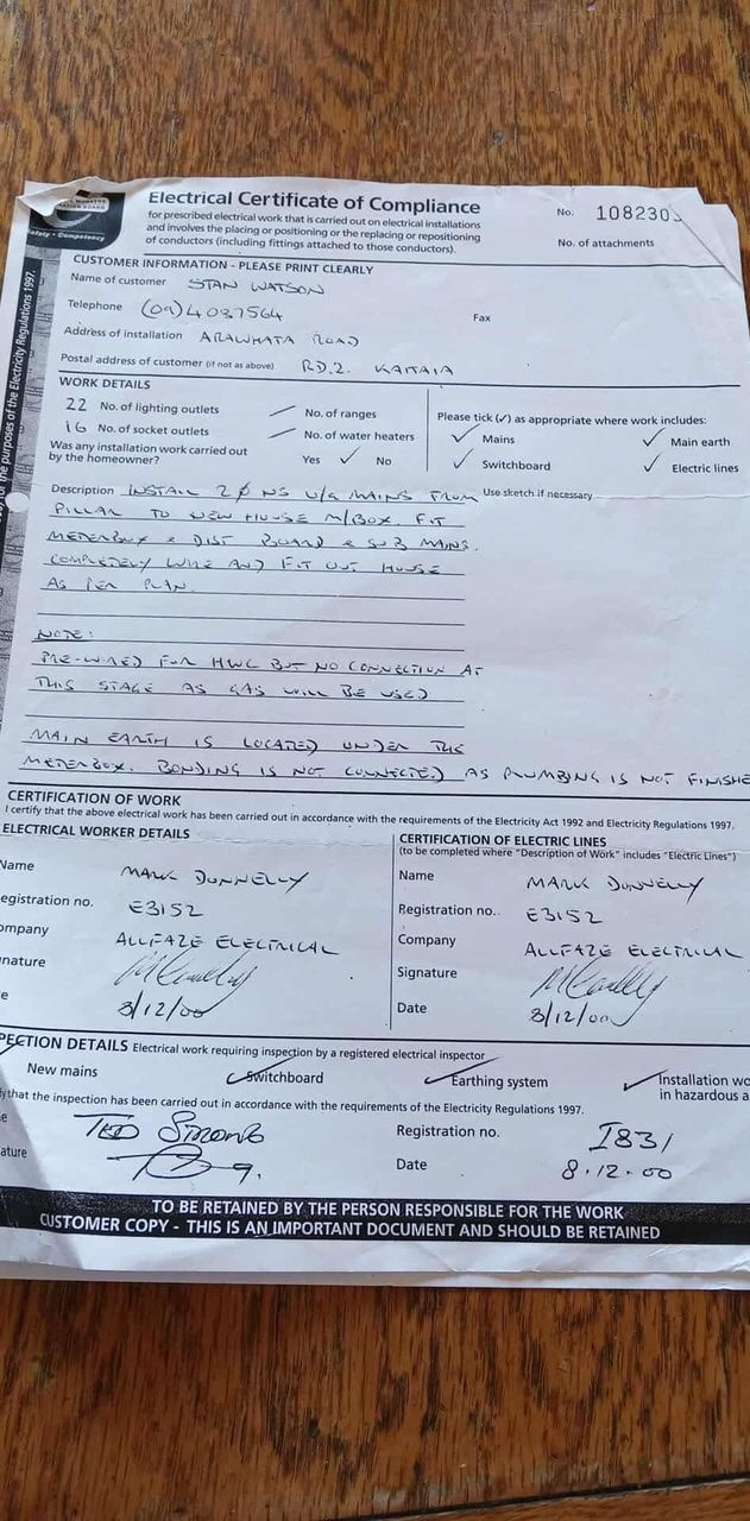 Electrical Certificate of Compliance
for prescribed electrical work that is carried out on electrical installations
and involves the placing or positioning or the replacing or repositioning
of conductors (including fittings attached to those conductors).
No. 1082303
No. of attachments
Safety • Competency
the purposes of the Electricity Regulations 1997.
CUSTOMER INFORMATION - PLEASE PRINT CLEARLY
Name of customer STAN WATSON
Telephone (09) 4087564 Fax
Address of installation ARAWHATA ROAD
Postal address of customer (if not as above) RD.2. KAITAIA
WORK DETAILS
22 No. of lighting outlets No. of ranges
16 No. of socket outlets No. of water heaters
Was any installation work carried out
by the homeowner? Yes ✓ No
Please tick (✓) as appropriate where work includes:
✓ Mains ✓ Main earth
✓ Switchboard ✓ Electric lines
Description INSTALL 2φ NS U/G MAINS FROM Use sketch if necessary
PILLAR TO NEW HOUSE M/BOX. FIT
METERBOX & DIST BOARD & SUB MAINS.
COMPLETELY WIRE AND FIT OUT HOUSE
AS PER PLAN
NOTE:
PRE-WIRED FOR HWC BUT NO CONNECTION AT
THIS STAGE AS GAS WILL BE USED
MAIN EARTH IS LOCATED UNDER THE
METERBOX. BONDING IS NOT CONNECTED AS PLUMBING IS NOT FINISHE
CERTIFICATION OF WORK
I certify that the above electrical work has been carried out in accordance with the requirements of the Electricity Act 1992 and Electricity Regulations 1997.
ELECTRICAL WORKER DETAILS
Name MARK DONNELLY
egistration no. E3152
ompany ALLFAZE ELECTRICAL
nature
e 8/12/00
CERTIFICATION OF ELECTRIC LINES
(to be completed where "Description of Work" includes "Electric Lines")
Name MARK DONNELLY
Registration no. E3152
Company ALLFAZE ELECTRICAL
Signature
Date 8/12/00
PECTION DETAILS Electrical work requiring inspection by a registered electrical inspector
New mains ✓ Switchboard ✓ Earthing system ✓ Installation wo
in hazardous a
y that the inspection has been carried out in accordance with the requirements of the Electricity Regulations 1997.
e TED Registration no. I831
ature Date 8.12.00
TO BE RETAINED BY THE PERSON RESPONSIBLE FOR THE WORK
CUSTOMER COPY - THIS IS AN IMPORTANT DOCUMENT AND SHOULD BE RETAINED